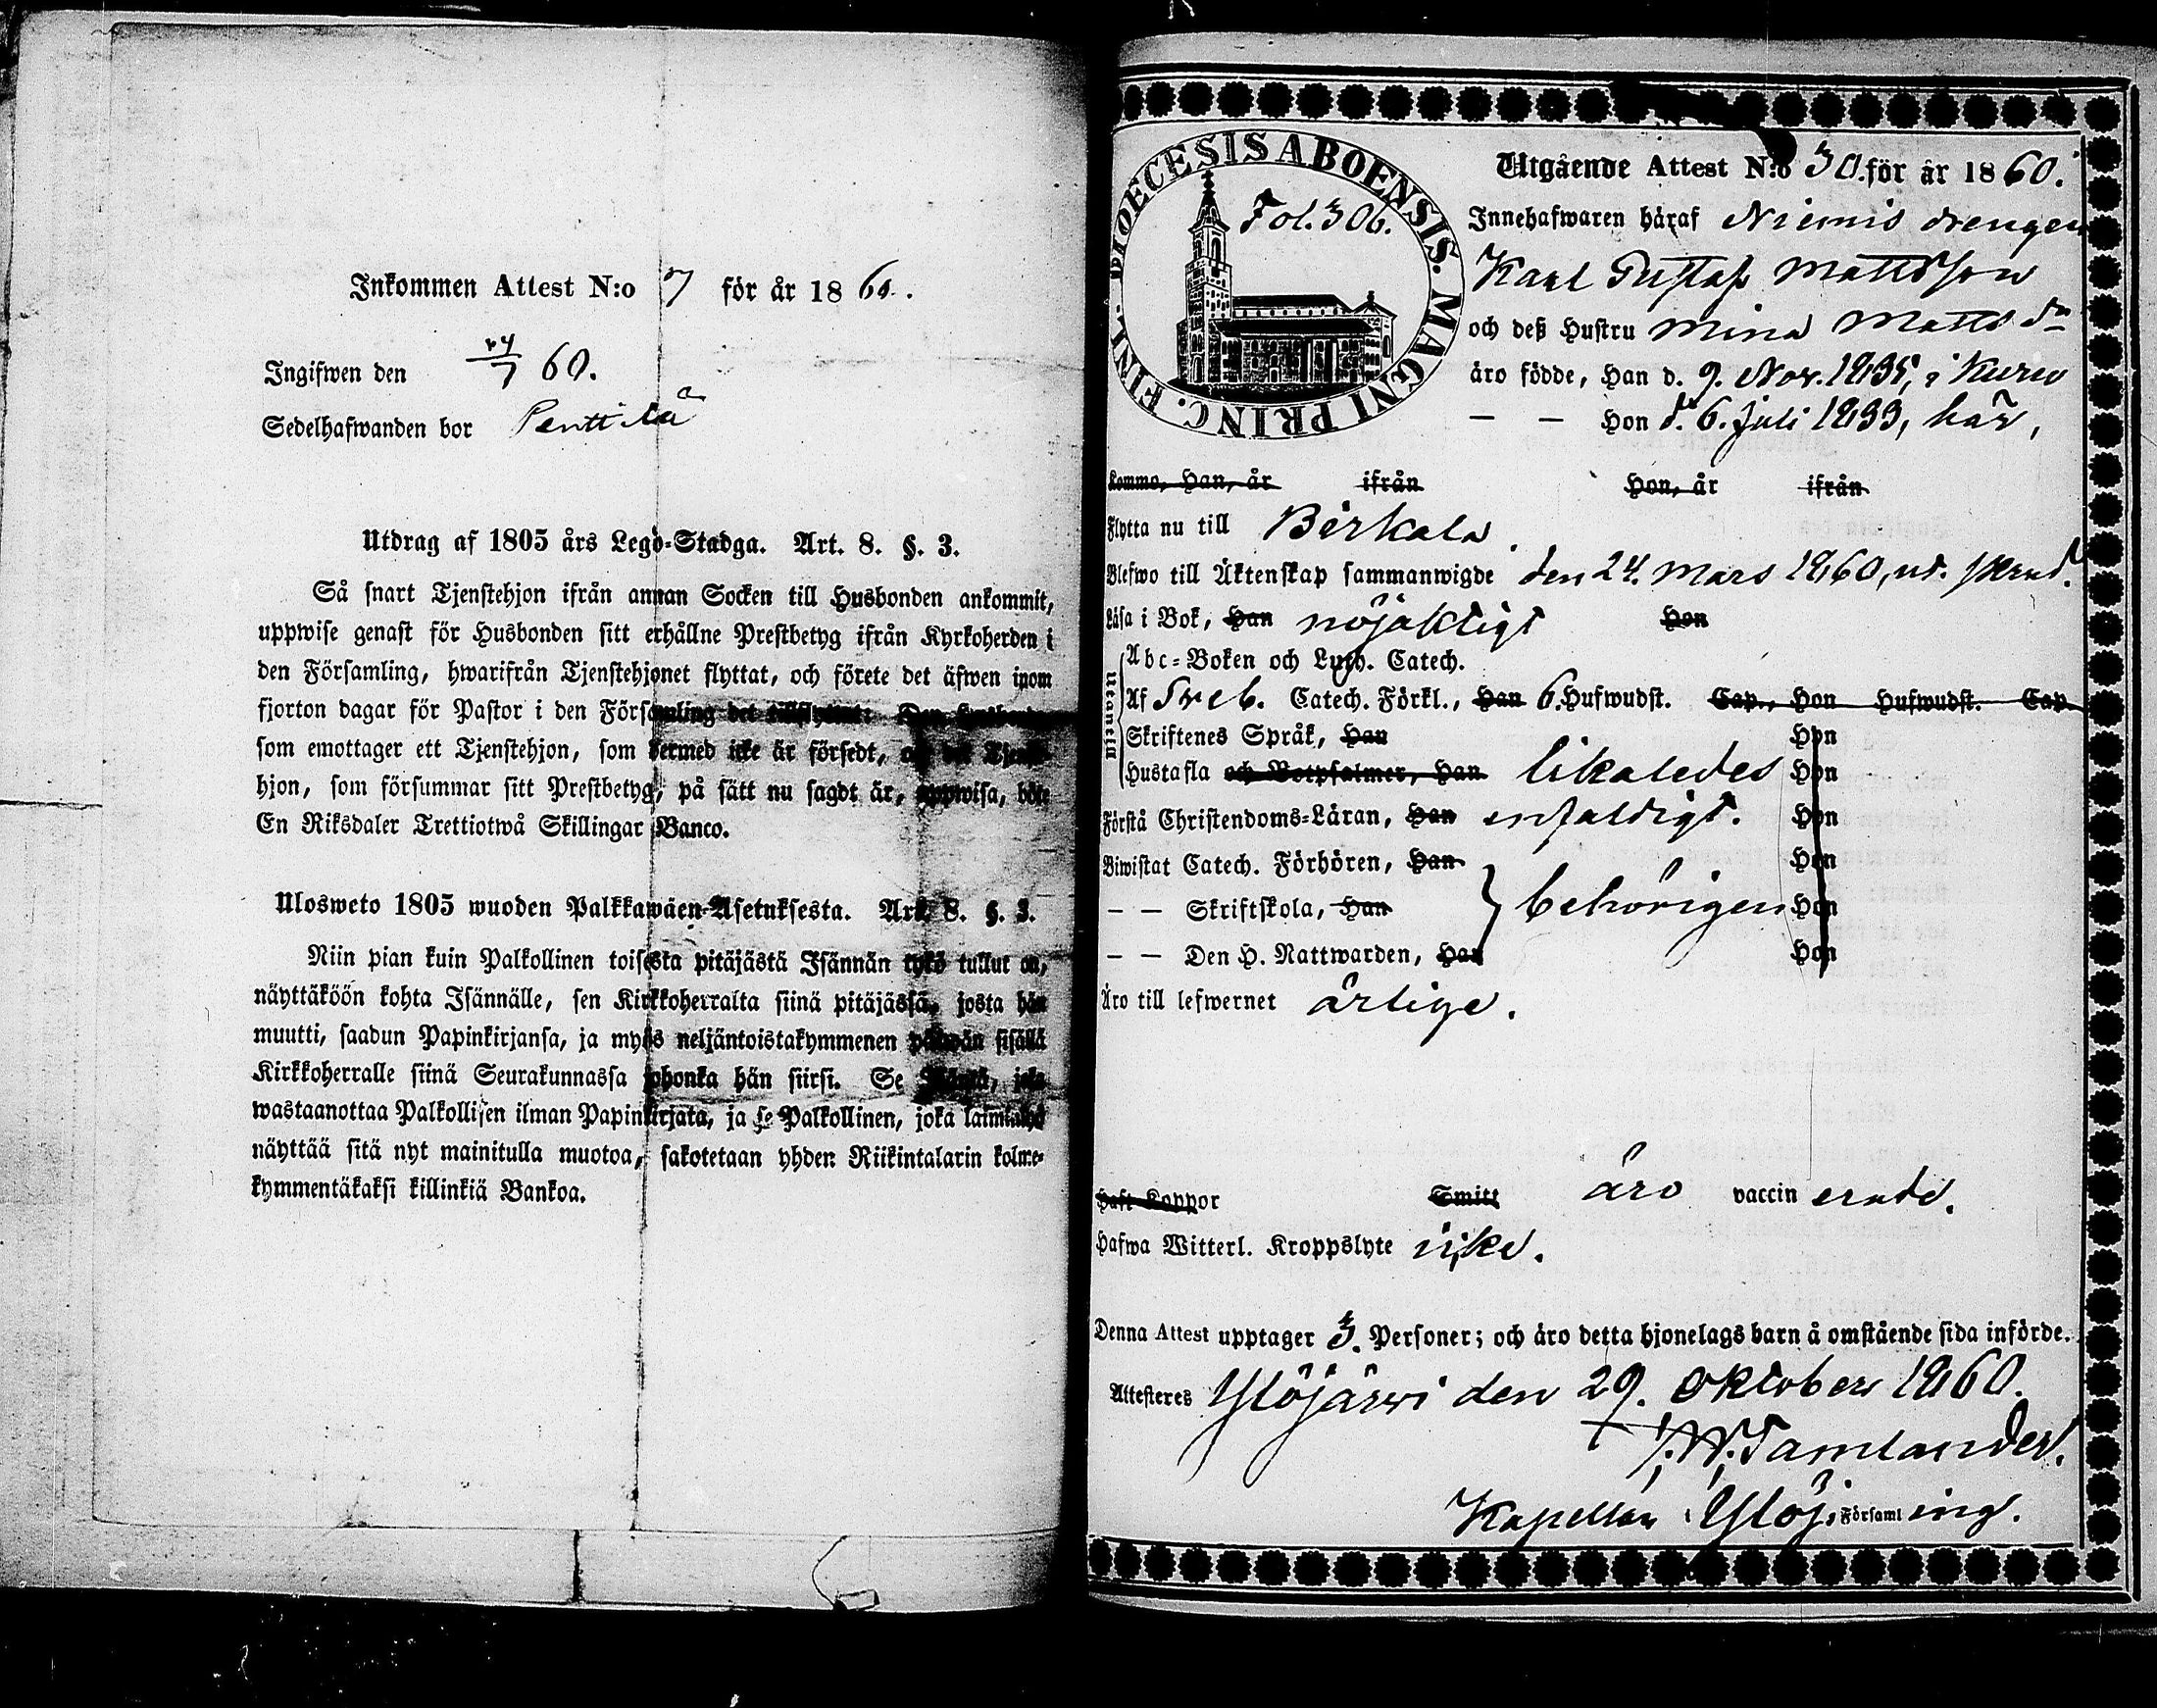 Inkommen Attest N:o 7 för år 1860.
Ingifwen den 24/7 60.
Sedelhafwanden bor Penttilä
Utdrag af 1805 års Lego-Stadga. Art. 8. §. 3.
Så snart Tjenstehjon ifrån annan Socken till Husbonden ankommit,
uppwise genast för Husbonden sitt erhållne Prestbetyg ifrån Kyrkoherden i
den Församling, hwarifrån Tjenstehjonet flyttat, och förete det äfwen inom
fjorton dagar för Pastor i den Församling det
som emottager ett Tjenstehjon, som dermed icke är försedt, och det Tjenste-
hjon, som försummar sitt Prestbetyg, på sätt nu sagdt är, uppwisa, böte
En Riksdaler Trettiotwå Skillingar Banco.
Ulosweto 1805 wuoden Palkkawäen-Asetuksesta. Art. 8. §. 3.
Niin pian kuin Palkollinen toisesta pitäjästä Isännän tykö tullut on,
näyttäköön kohta Isännälle, sen Kirkkoherralta siinä pitäjässä, josta hän
muutti, saadun Papinkirjansa, ja myös neljäntoistakymmenen päiwän sisällä
Kirkkoherralle siinä Seurakunnassa johonka hän siirsi. Se Isäntä, joka
wastaanottaa Palkollisen ilman Papinkirjata, ja se Palkollinen, joka laiminlyö
näyttää sitä nyt mainitulla muotoa, sakotetaan yhden Riikintalarin kolme-
kymmentäkaksi killinkiä Bankoa.
DIOECESIS ABOENSIS. MAGNI PRINC. FINL.
Fol. 306.
Utgående Attest N:o 30. för år 1860.
Innehafwaren häraf Niemis drengen
Karl Gustaf Mattsson
och deß Hustru Mina Matts dr
äro födde, Han d. 9. Nov. 1835, i Kuru
— — Hon d. 6. Juli 1833, här,
Komme, Han, år ifrån Hon, år ifrån
Flytta nu till Birkala.
Blefwo till Äktenskap sammanwigde den 24. Mars 1860,
Läsa i Bok, Han nöjaktigt Hon
Utantill
Abc-Boken och Luth. Catech.
Af Sveb. Catech. Förkl., Han 6. Hufwudst. Cap., Hon Hufwudst. Cap.
Skriftenes Språk, Han Hon
Hustafla och Botpsalmer, Han likaledes Hon
Förstå Christendoms-Läran, Han enfaldigt. Hon
Biwistat Catech. Förhören, Han Hon
— — Skriftskola, Han behörigen Hon
— — Den H. Nattwarden, Han Hon
Äro till lefwernet ärlige.
Haft Koppor Smitt äro vaccinerade.
Hafwa Witterl. Kroppslyte icke.
Denna Attest upptager 3. Personer; och äro detta hjonelags barn å omstående sida införde.
Attesteres Ylöjärvi den 29. Oktober 1860.
J. W. Tamlander.
Kapellan i Ylöj. Församling.